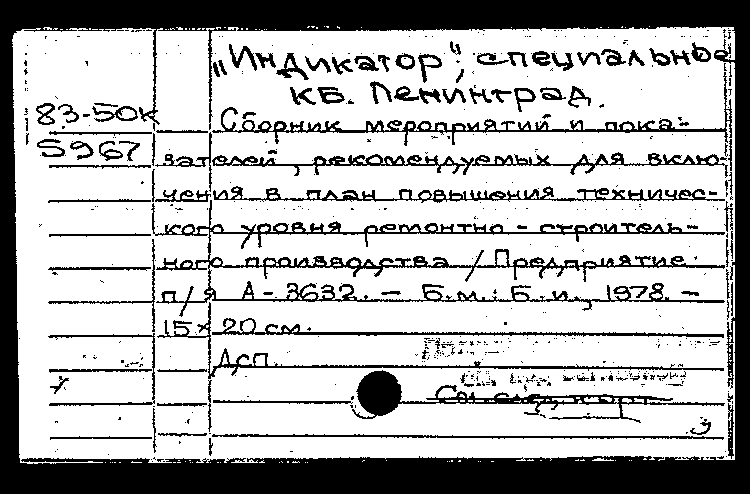 „Индикатор“, специальное
КБ. Ленинград.
83-50к
Сборник мероприятий и пока-
5967
зателей, рекомендуемых для вклю-
чения в план повышения техничес-
кого уровня ремонтно-строитель-
ного производства / Предприятие
п/я А-3632. — Б.м.: Б.и., 1978. —
15×20 см.
Дсп.
См. след. карт.